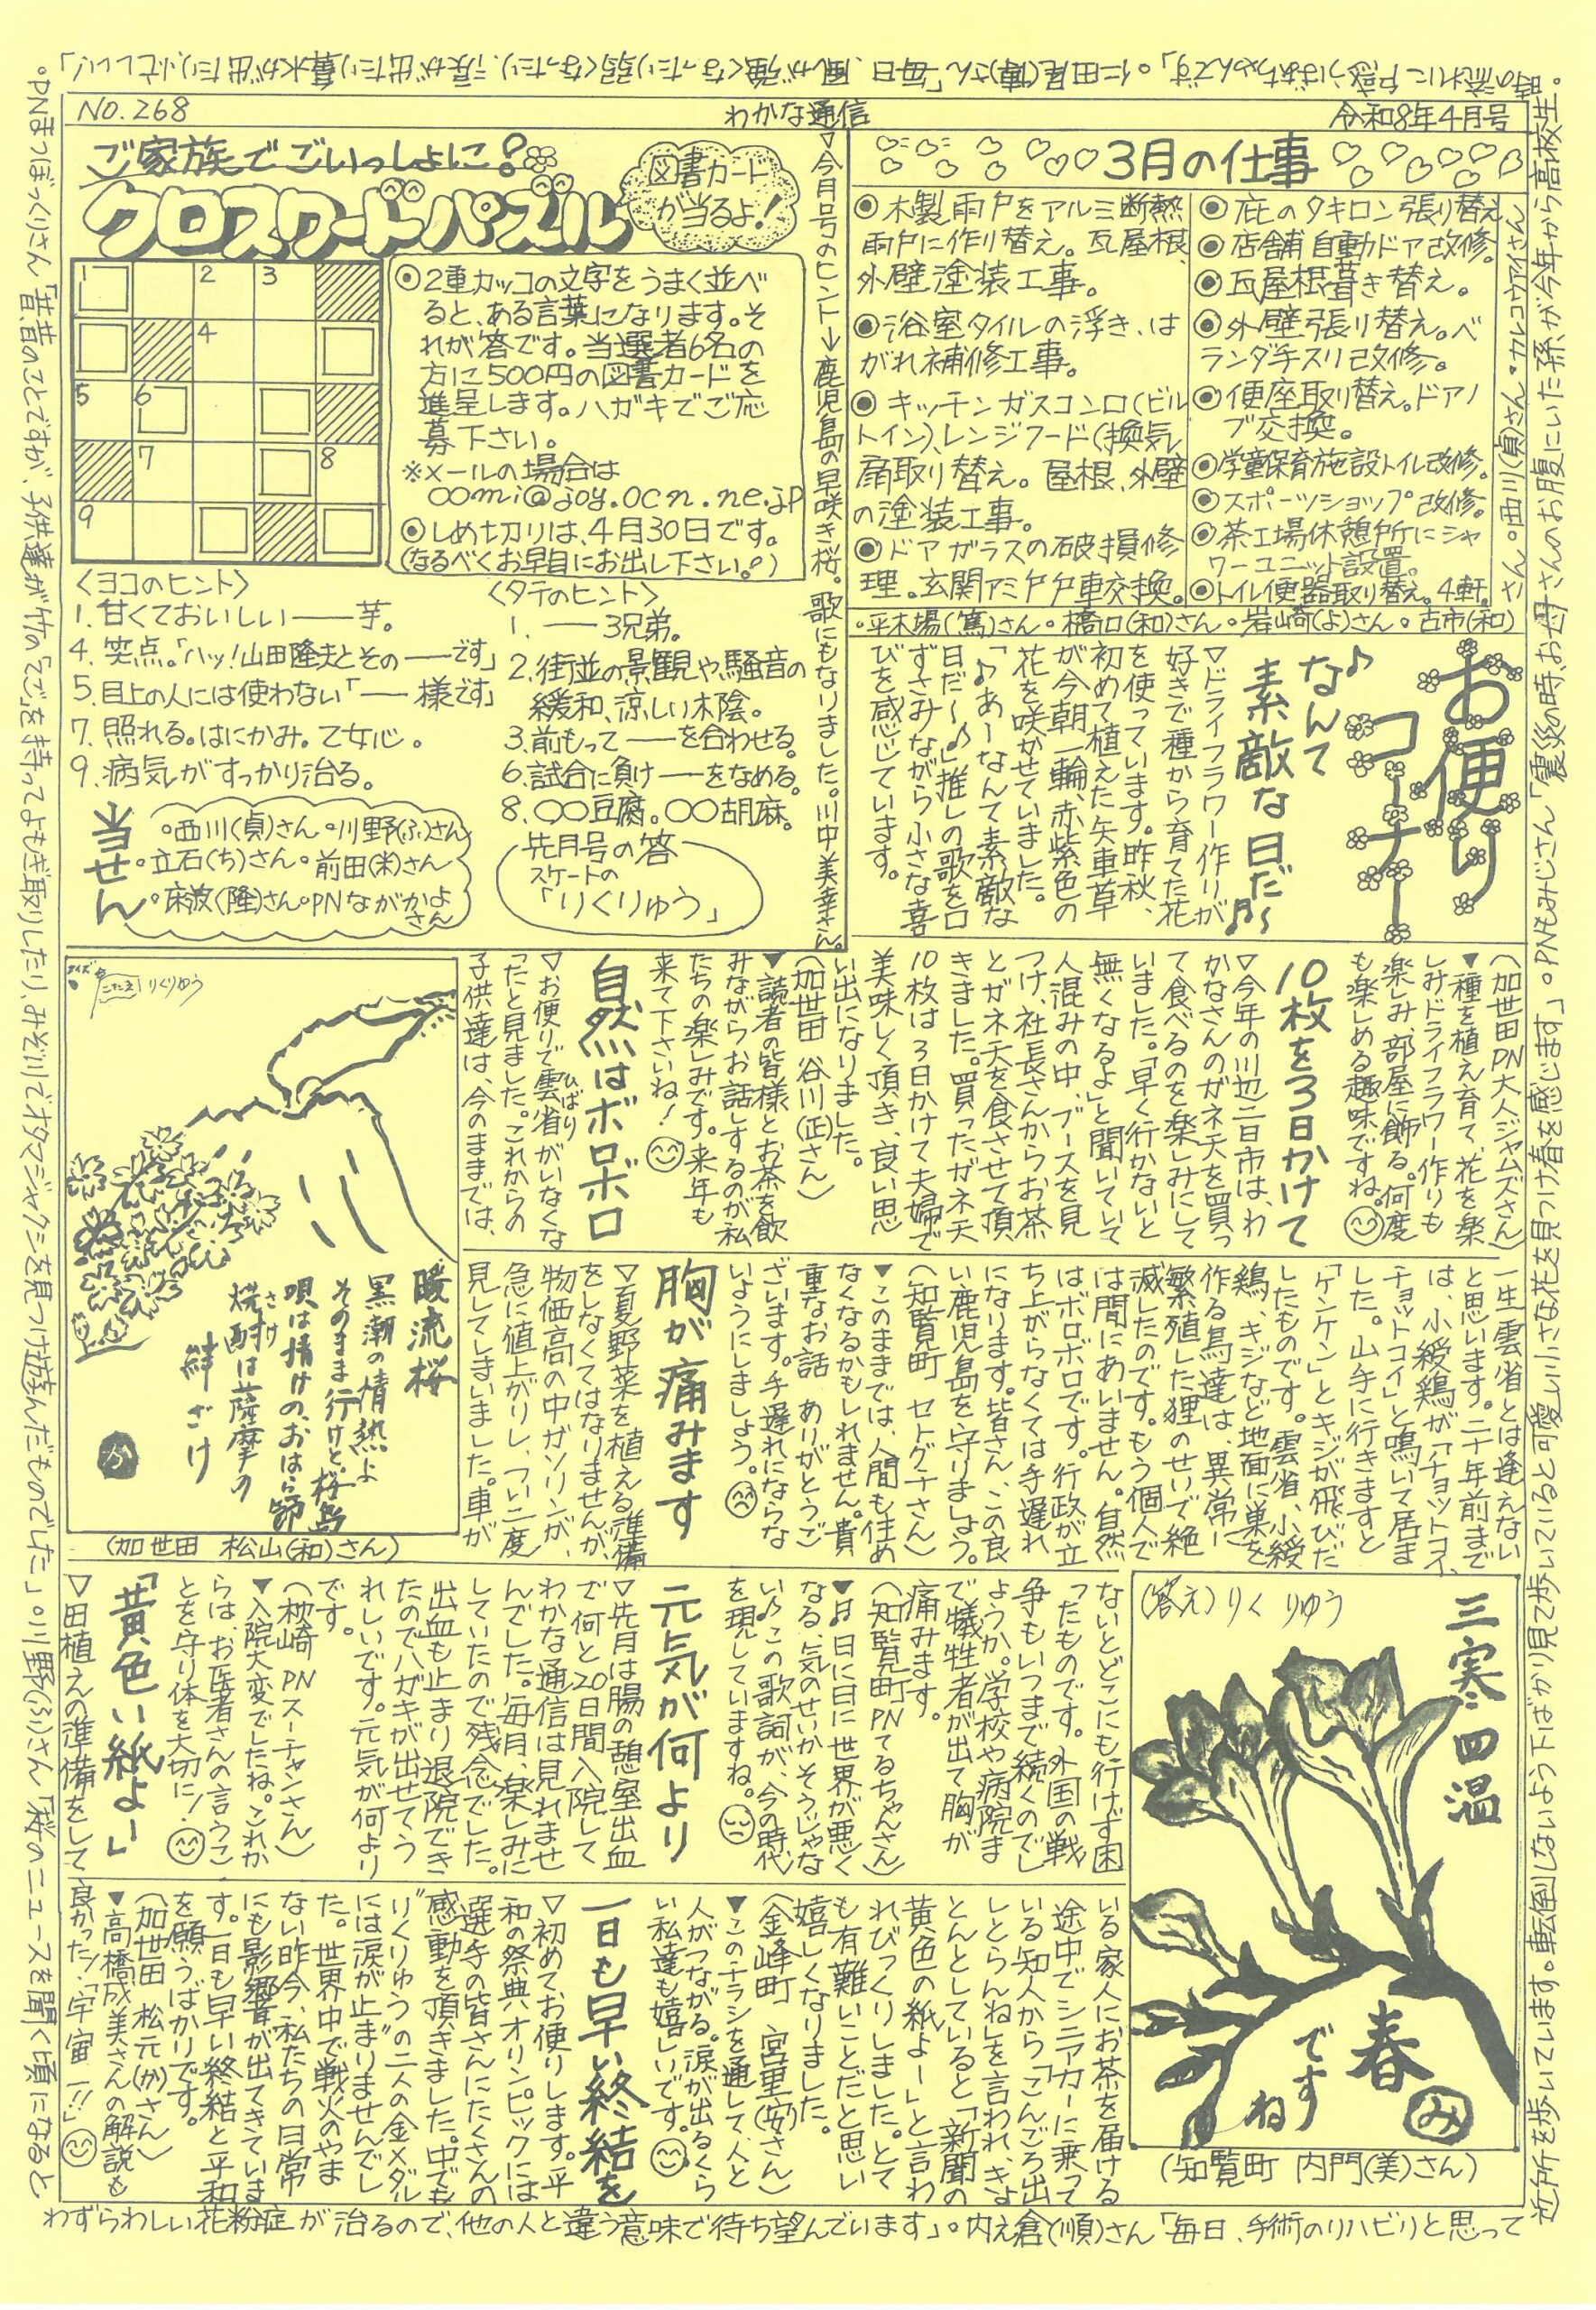 NO.268
わかな通信
令和8年4月号
ご家族でごいっしょに!
クロスワードパズル
図書カード
が当るよ!
1
2
3
4
5
6
7
8
9
◉2重カッコの文字をうまく並べ
ると、ある言葉になります。そ
れが答です。当選者6名の
方に500円の図書カードを
進呈します。ハガキでご応
募下さい。
※メールの場合は
oomi@joy.ocn.ne.jp
◉しめ切りは、4月30日です。
(なるべくお早目にお出し下さい!)
<ヨコのヒント>
1. 甘くておいしい――芋。
4. 笑点。「ハッ!山田隆夫とその――です」
5. 目上の人には使わない「―― 様です」
7. 照れる。はにかみ。乙女心。
9. 病気がすっかり治る。
<タテのヒント>
1. ―― 3兄弟。
2. 街並の景観や騒音の
緩和、涼しい木陰。
3. 前もって――を合わせる。
6. 試合に負け――をなめる。
8. ○○豆腐。○○胡麻。
当せん
・西川(貞)さん・川野(ふ)さん
・立石(ち)さん・前田(米)さん
・床波(隆)さん・PNながかよ
さん
先月号の答
スケートの
「りくりゅう」
▽今月号のヒント→鹿児島の早咲き桜。歌にもなりました。川中美幸さん。
3月の仕事
◉木製雨戸をアルミ断熱
雨戸に作り替え。瓦屋根、
外壁塗装工事。
◉浴室タイルの浮き、は
がれ補修工事。
◉キッチンガスコンロ(ビル
トイン)、レンジフード(換気
扇取り替え。屋根、外壁
の塗装工事。
◉ドアガラスの破損修
理。玄関アミ戸戸車交換。
◉庇のタキロン張り替え
◉店舗自動ドア改修。
◉瓦屋根葺き替え。
◉外壁張り替え。ベ
ランダ手スリ改修。
◉便座取り替え。ドアノ
ブ交換。
◉学童保育施設トイル改修。
◉スポーツショップ改修。
◉茶工場休憩所にシャ
ワーユニット設置。
◉トイル便器取り替え。4軒。
・平木場(篤)さん・橋口(和)さん・岩崎(よ)さん・古市(和)
さん・西川(貞)さん・カレコウアイさん
お便り
コーナー
♪なんて
素敵な日だ〜♬
▽ドライフラワー作りが
好きで種から育てた花
を使っています。昨秋、
初めて植えた矢車草
が今朝一輪、赤紫色の
花を咲かせていました。
「♪あーなんて素敵な
日だ〜♪」推しの歌を口
ずさみながら小さな喜
びを感じています。
(加世田 PN大人ジャムズさん)
▼種を植え育て、花を楽
しみドライフラワー作りも
楽しみ、部屋に飾る。何度
も楽しめる趣味ですね。
10枚を3日かけて
▽今年の川辺二日市は、わ
かなさんのガネ天を買っ
て食べるのを楽しみにして
いました。「早く行かないと
無くなるよ」と聞いていて
人混みの中、ブースを見
つけ、社長さんからお茶
とガネ天を食させて頂
きました。買ったガネ天
10枚は3日かけて夫婦で
美味しく頂き、良い思
い出になりました。
(加世田 谷川(正)さん)
▼読者の皆様とお茶を飲
みながらお話しするのが私
たちの楽しみです。来年も
来て下さいね!
自然はボロボロ
▽お便りで雲雀がいなくな
ひばり
ったと見ました。これからの
子供達は、今のままでは、
一生雲雀とは逢えない
と思います。二十年前まで
は、小綬鶏が「チョットコイ、
チョットコイ」と鳴いて居ま
した。山手に行きますと
「ケンケン」とキジが飛びだ
したものです。雲雀、小綬
鶏、キジなど地面に巣を
作る鳥達は、異常に
繁殖した狸のせいで絶
滅したのです。もう個人で
は間にあいません。自然
はボロボロです。行政が立
ち上がらなくては手遅れ
になります。皆さん、この良
い鹿児島を守りましょう。
(知覧町 セトグチさん)
▼このままでは、人間も住め
なくなるかもしれません。貴
重なお話 ありがとうご
ざいます。手遅れにならな
いようにしましょう。
胸が痛みます
▽夏野菜を植える準備
をしなくてはなりませんが、
物価高の中ガソリンが、
急に値上がりし、つい二度
見してしまいました。車が
ないとどこにも行けず困
ったものです。外国の戦
争もいつまで続くのでし
ょうか。学校や病院ま
で犠牲者が出て胸が
痛みます。
(知覧町PNてるちゃんさん)
▼♬日に日に世界が悪く
なる、気のせいかそうじゃな
い♪この歌詞が、今の時代
を現していますね。
元気が何より
▽先月は腸の憩室出血
で何と20日間入院して
わかな通信は見れませ
んでした。毎月、楽しみに
していたので残念でした。
出血も止まり退院でき
たのでハガキが出せてう
れしいです。元気が何より
です。
(枕崎 PNスーチャンさん)
▼入院大変でしたね。これか
らは、お医者さんの言うこ
とを守り体を大切に!
「黄色い紙よー」
▽田植えの準備をして
いる家人にお茶を届ける
途中でシニアカーに乗って
いる知人から「こんごろ出
しとらんね」を言われ、きょ
とんとしていると「新聞の
黄色の紙よー」と言わ
れびっくりしました。とて
も有難いことだと思い
嬉しくなりました。
(金峰町 宮里(安)さん)
▼このチラシを通して、人と
人がつながる。涙が出るくら
い私達も嬉しいです。
一日も早い終結を
▽初めてお便りします。平
和の祭典オリンピックには
選手の皆さんにたくさんの
感動を頂きました。中でも
"りくりゅう"の二人の金メダル
には涙が止まりませんでし
た。世界中で戦火のやま
ない昨今、私たちの日常
にも影響が出てきていま
す。一日も早い終結と平和
を願うばかりです。
(加世田 松元(か)さん)
▼高橋成美さんの解説も
良かった!「宇宙一!!」
クイズ
こたえ りくりゅう
暖流桜
黒潮の情熱よ
そのまま行けと桜島
唄は情けの、おはら節
さけ
焼酎は薩摩の
絆ざけ
(加世田 松山(和)さん)
(答え)りくりゅう
三寒四温
春
ですね
み
(知覧町 内門(美)さん)
・PNまつぼっくりさん「昔、昔のことですが、子供達が竹の「てご」を持ってよもぎ取りしたり、みぞ川でオタマジャクシを見つけ遊んだものでした」。川野(ふ)さん「桜のニュースを聞く頃になると
わずらわしい花粉症が治るので、他の人と違う意味で待ち望んでいます」。内え倉(順)さん「毎日、手術のリハビリと思って
近所を歩いています。転倒しないよう下ばかり見て歩いていると可愛い小さな花を見つけ春を感じます」。PNもみじさん「震災の時、お母さんのお腹にいた孫が今年から高校生。
時の流れに戸惑うばあちゃんです」。仁田尾(博)さん「毎日、風が強くなったり弱くなったり、涙が出たり鼻水が出たり忙しい!」